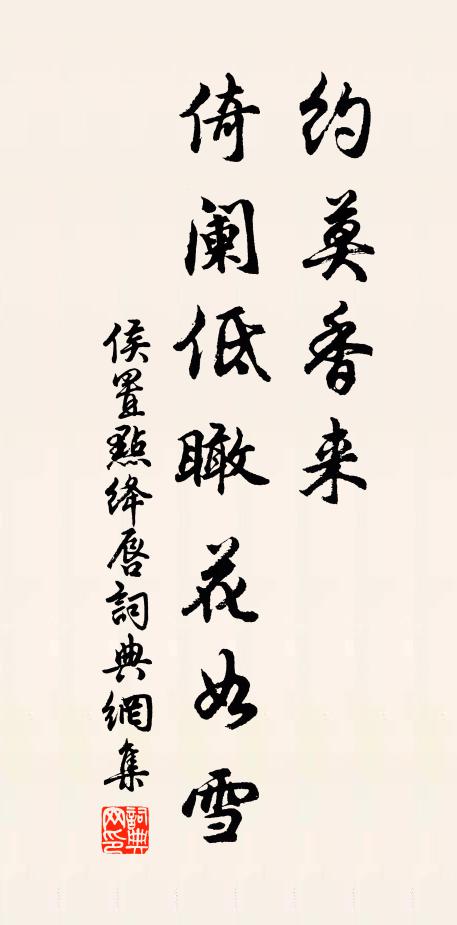 约莫香来
倚阑低瞰花如雪
侯置點绛唇詞典網集
詞典网印